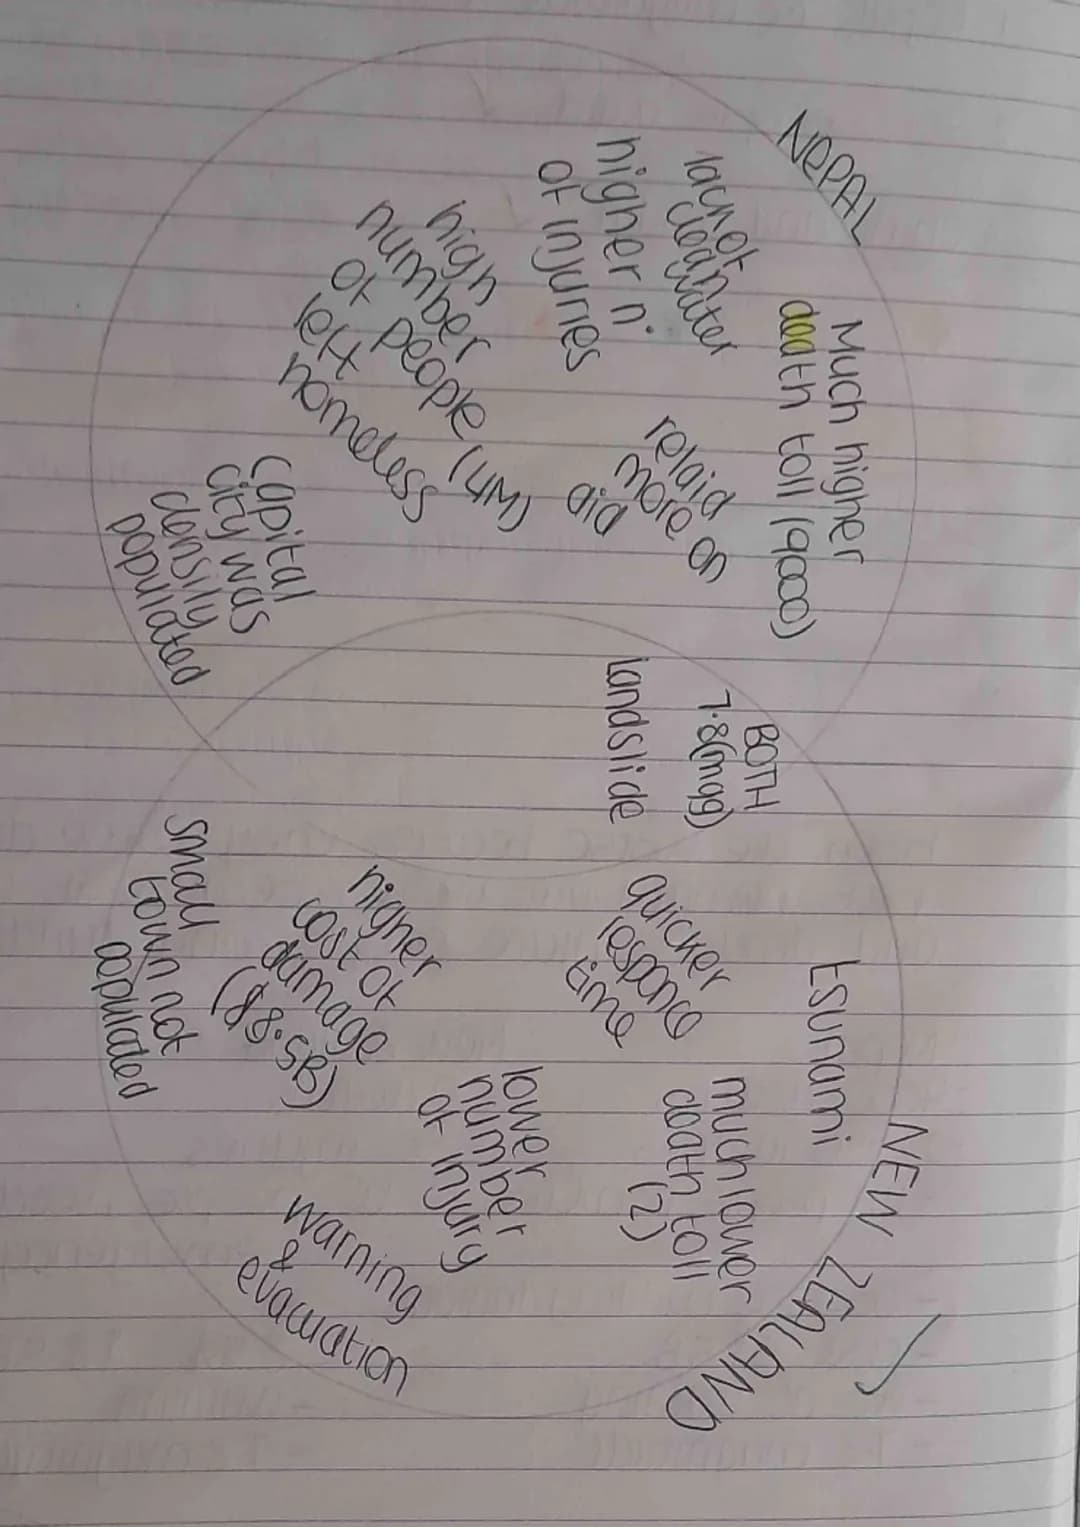 NEPAL
Much higher
death toll (9000)
lack of
clean water
higher n.
of injuries
relaid
more on
aid
high
number
of people (4M)
left
homeless
Capital
city was
densily
populated
BOTH
7.8(mag)
landslide
NEW ZEALAND
tsunami
quicker
responce
time
much lower
death toll
(2)
lower
number
of injury
higher
cost of
damage
($8.5B)
warning
&
evacuation
small
town not
populated